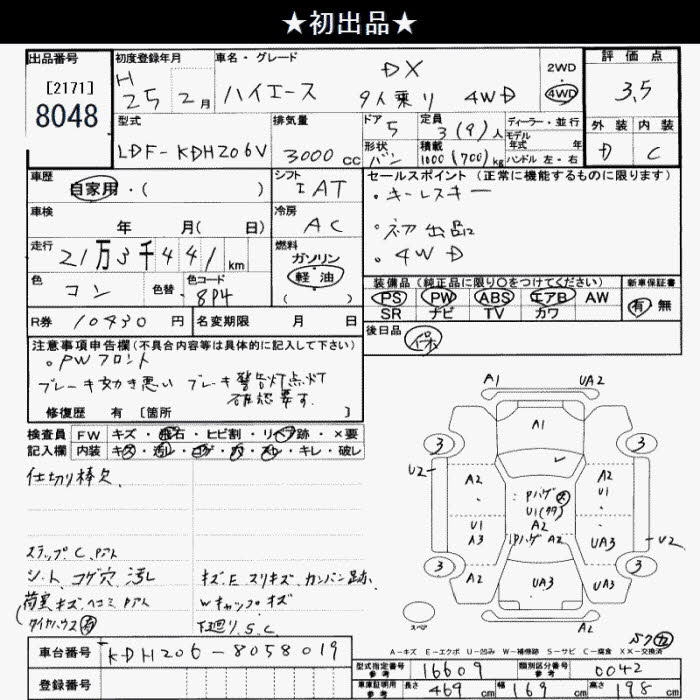 ★初出品★
出品番号
[2171]
8048
初度登録年月
H
25 2月
車名・グレード
ハイエース DX
9人乗り 4WD
2WD
4WD
評価点
3.5
外装 内装
D C
型式
LDF-KDH206V
排気量
3000 cc
ドア
5
形状
バン
定員
3(9)人
積載
1000(700)kg
ディーラー・並行
モデル
年式 年
ハンドル 左・右
車歴
自家用・( )
シフト
IAT
セールスポイント (正常に機能するものに限ります)
・キーレスキー
・初出品
・4WD
車検
年 月( 日)
冷房
AC
走行
21万3千441 km
燃料
ガソリン
軽・油
( )
色
コン
色替
色コード
8P4
装備品(純正品に限り○をつけてください)
PS PW ABS エアB AW
SR ナビ TV カワ
新車保証書
有 無
R券 10430 円
名変期限 月 日
後日品
注意事項申告欄(不具合内容等は具体的に記入して下さい)
。PWフロント
ブレーキ効き悪い ブレーキ警告灯点灯
確認要す
修復歴 有 [箇所 ]
検査員
記入欄
FW キズ・飛石・ヒビ割・リペア跡・×要
内装 キズ・汚レ・コゲ・穴・スレ・キレ・破レ
仕切り棒欠
ステップC,Pアト
シート、コゲ穴汚レ
荷室キズヘコミPアト
タイヤハウス
キズEスリキズ、カンバン跡
Wキャップキズ
下廻りS.C
A1
UA2
A1
3
3
U2
A2
A2
U1
Pハゲ
A2
U1
A3
Pハゲ A2
UA3
U2
3
3
A2
UA3
UA3
スペア
A-キズ E-エクボ U-凹み W-補修跡 S-サビ C-腐食 XX-交換済
車台番号
KDH206-8058019
登録番号
型式指定番号
参考
16609
類別区分番号
参考
0042
車庫証明用
参考
長さ 469 cm
幅 169 cm
高さ 198 cm